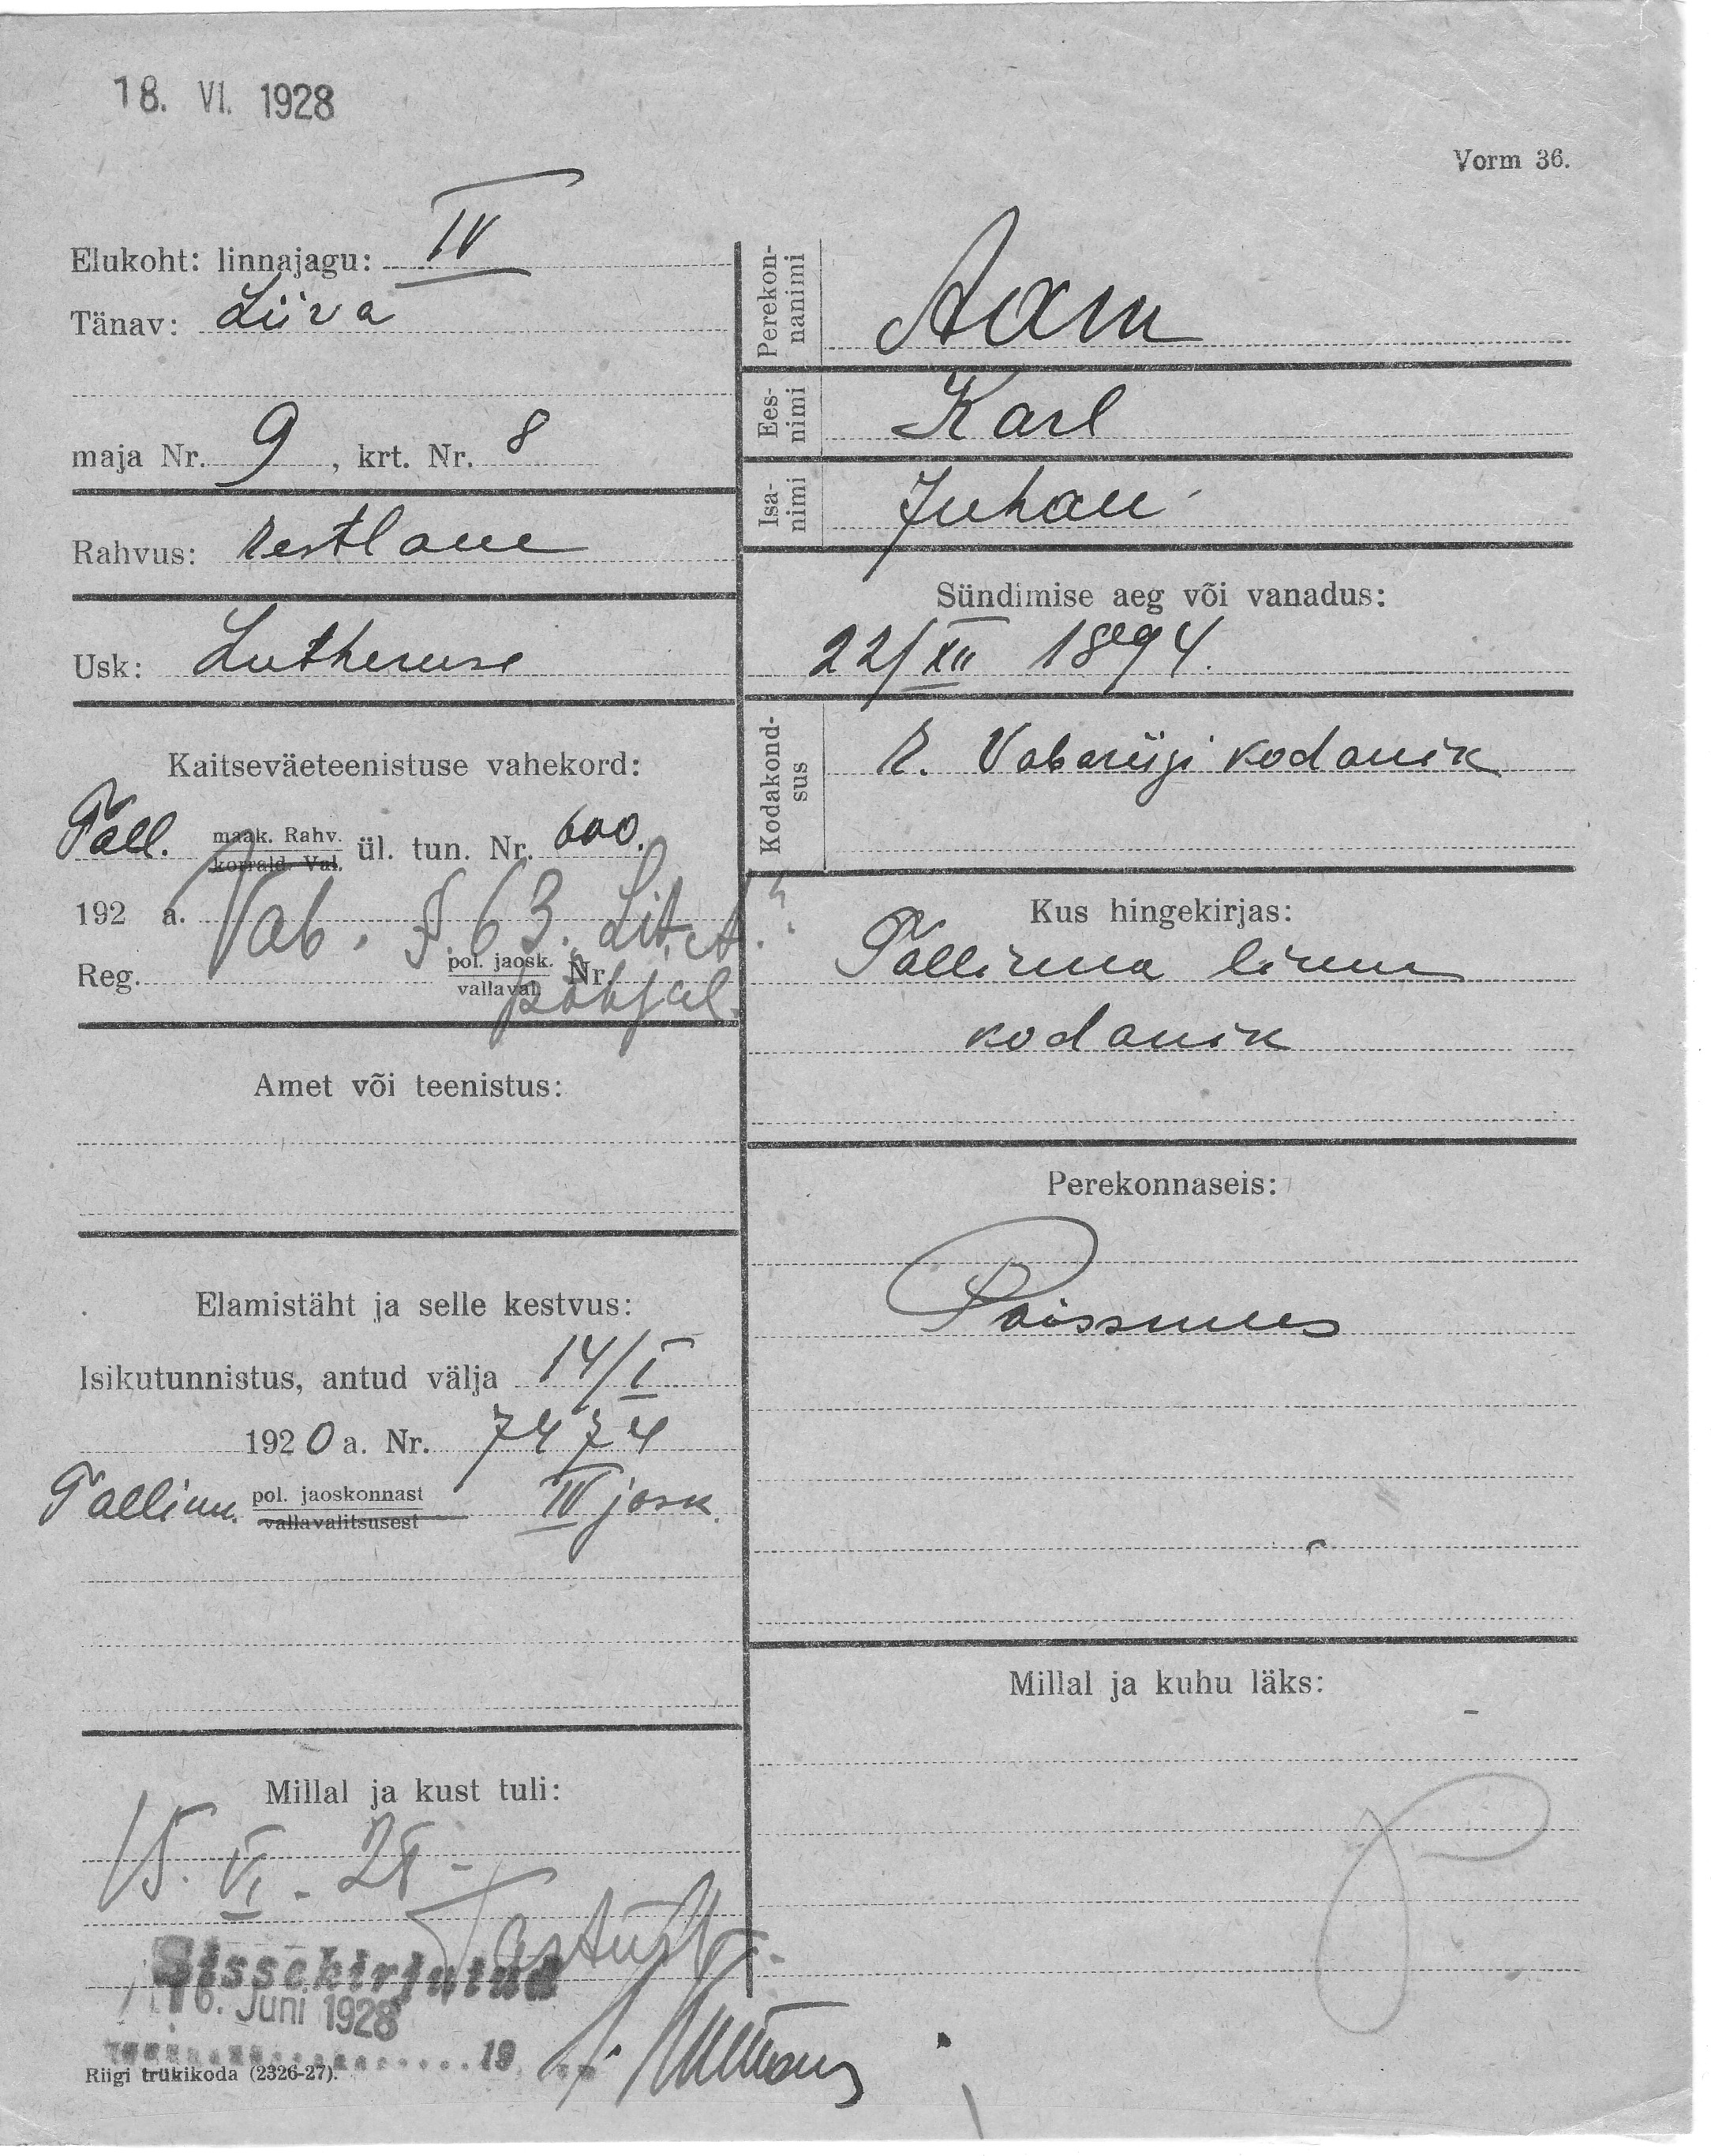 18. VI. 1928
Vorm 36.
Elukoht: linnajagu: IV
Tänav: Liiva
maja Nr. 9, krt. Nr. 8
Rahvus: Eestlane
Usk: Lutheruse
Kaitseväeteenistuse vahekord:
Tall. maak. Rahv. ül. tun. Nr. 600.
korrald. Val.
192 a. Vab. §. 63. Lit. A.
Reg. pol. jaosk. Nr.
vallaval.
põhjal.
Amet või teenistus:
Elamistäht ja selle kestvus:
Isikutunnistus, antud välja 14/I
1920 a. Nr. 7474
Tallinn. pol. jaoskonnast IV josk.
vallavalitsusest
Millal ja kust tuli:
15. VI. 28
Tartust
Sissekirjutud
16. Juni 1928
19
Riigi trükikoda (2326-27).
Perekon-
nanimi
Aam
Ees-
nimi
Karl
Isa-
nimi
Juhan
Sündimise aeg või vanadus:
22/XII 1894.
Kodakond-
sus
E. Vabariigi kodanik
Kus hingekirjas:
Tallinna linna
kodanik
Perekonnaseis:
Poissmees
Millal ja kuhu läks: